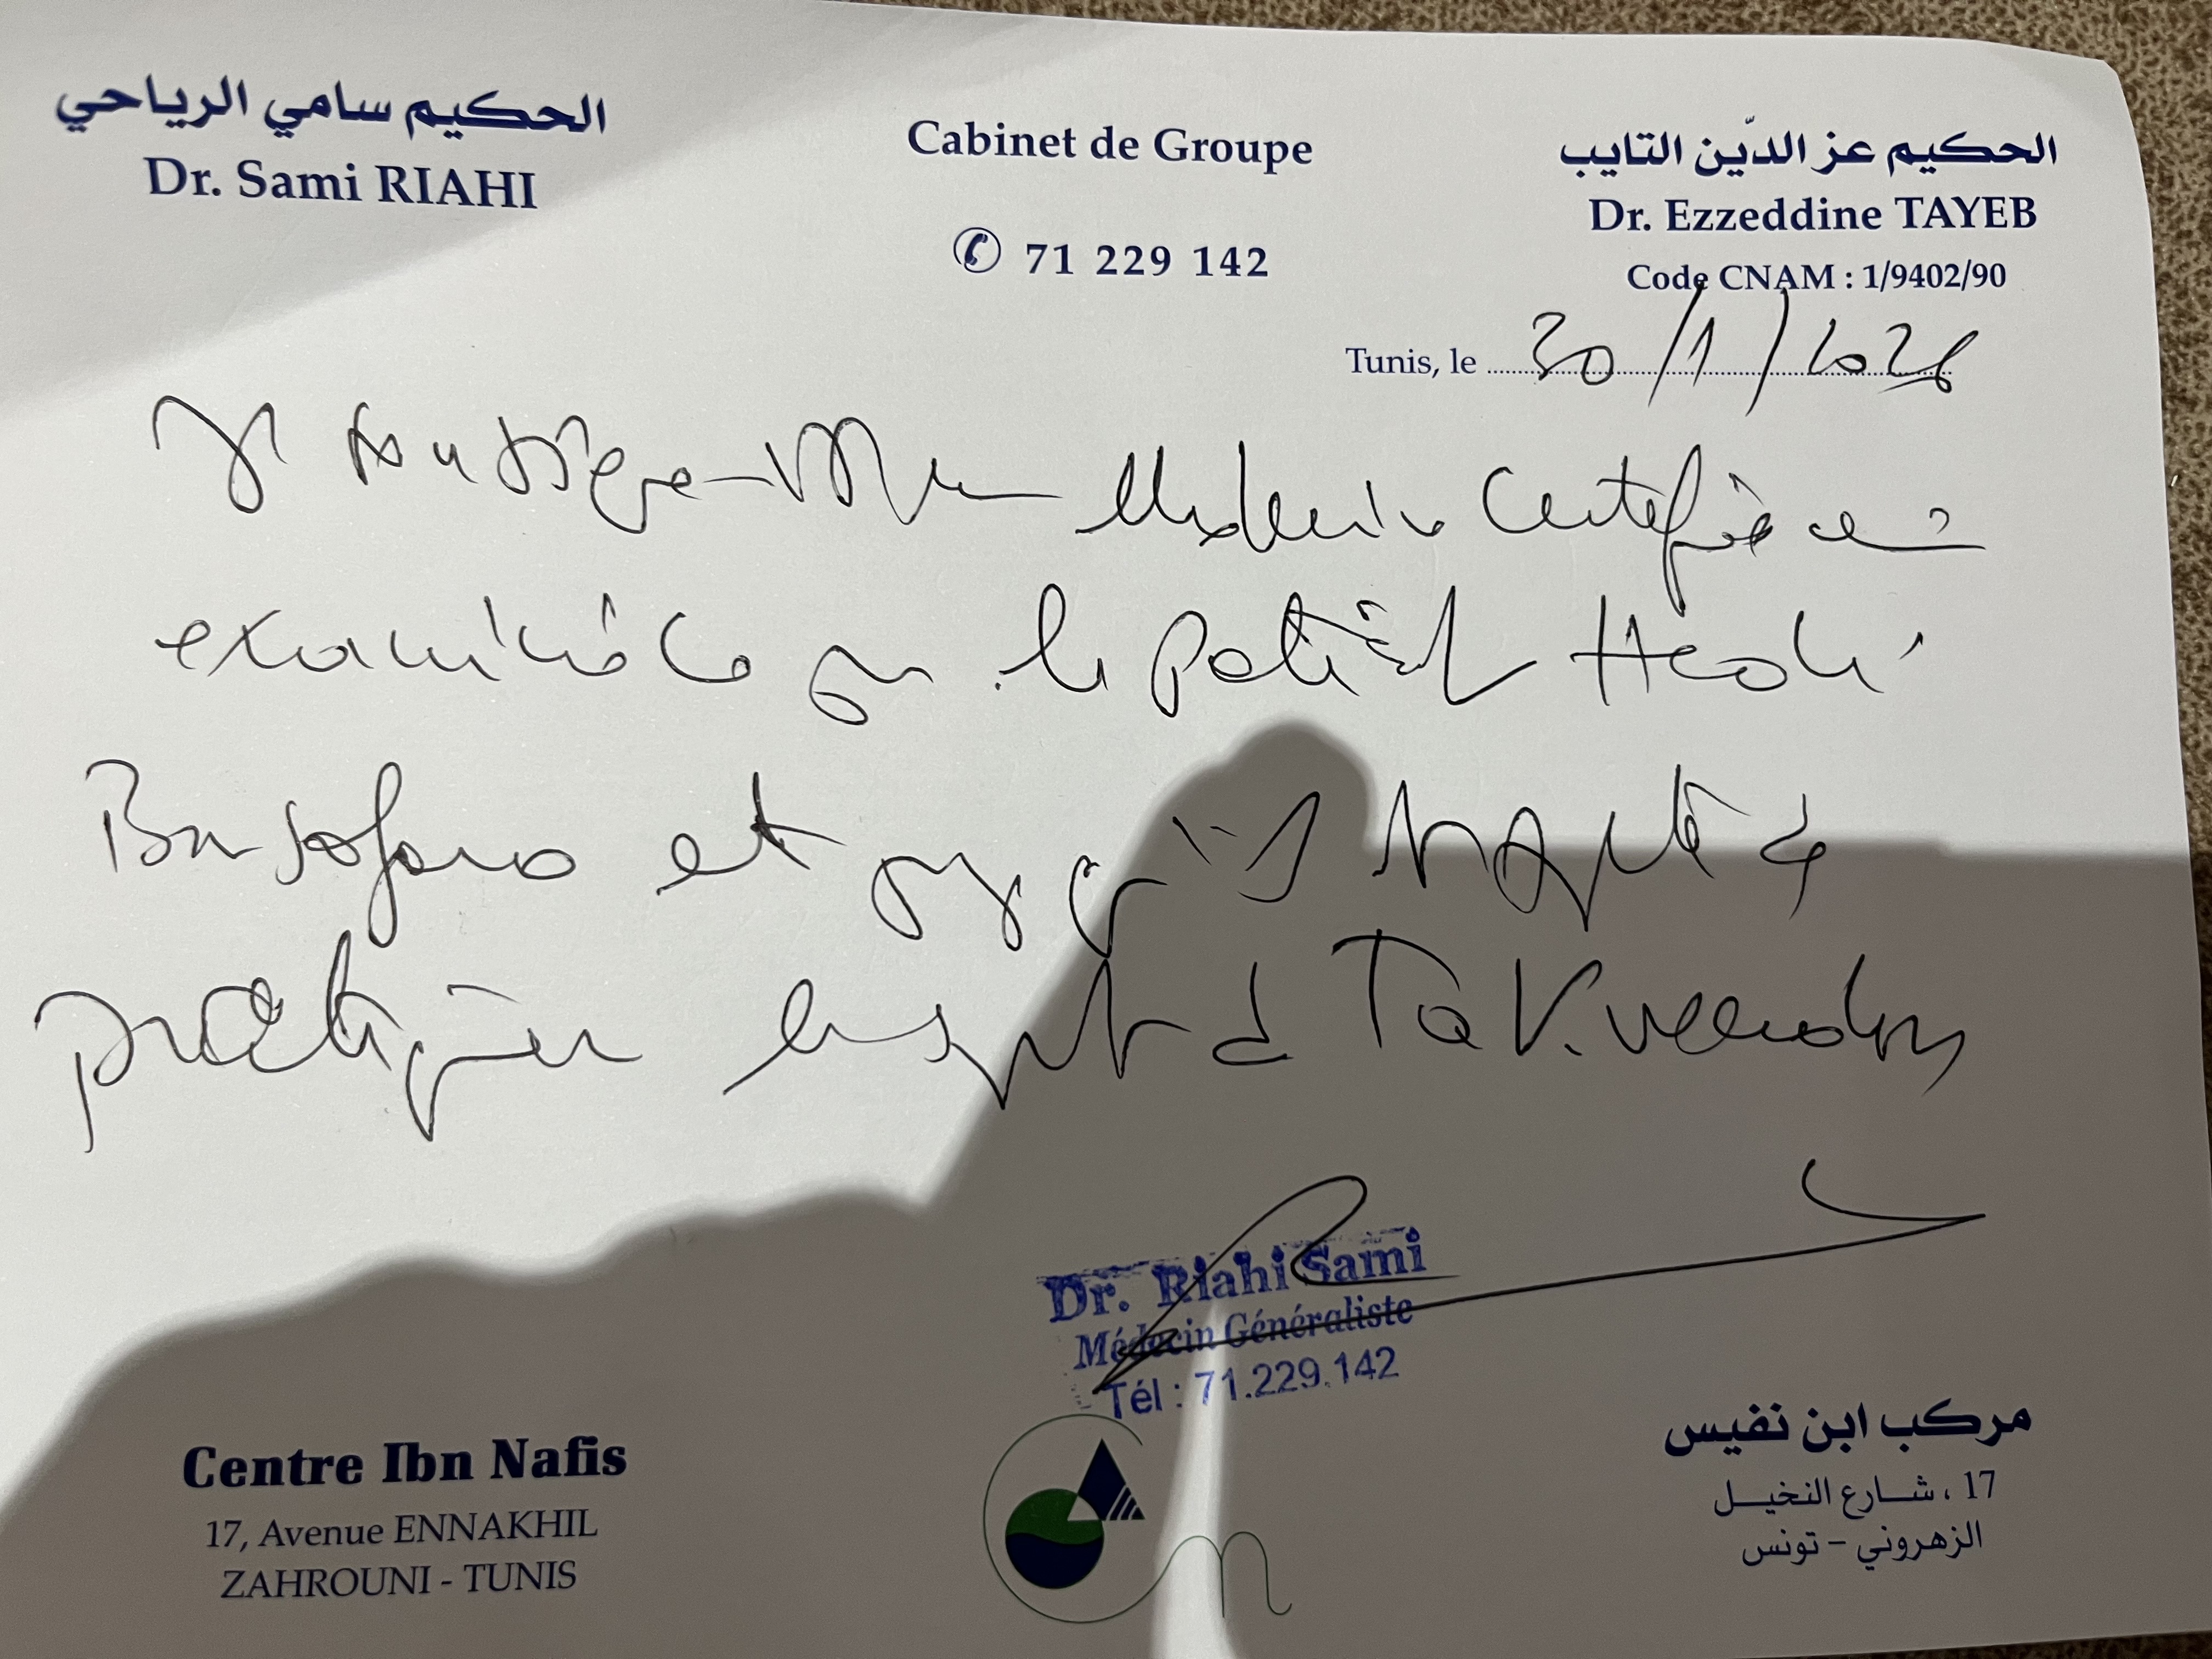 الحكيم سامي الرياحي
Dr. Sami RIAHI
Cabinet de Groupe
71 229 142
الحكيم عز الدّين التايب
Dr. Ezzeddine TAYEB
Code CNAM : 1/9402/90
Tunis, le 30/1/2026
Je soussigné Médecin certifie avoir
examiné ce jour le patient Hedi
Ben et apte à
pratiquer le sport de Taekwondo
Dr. Riahi Sami
Médecin Généraliste
Tél : 71.229.142
Centre Ibn Nafis
17, Avenue ENNAKHIL
ZAHROUNI - TUNIS
مركب ابن نفيس
17 ، شارع النخيل
الزهروني - تونس